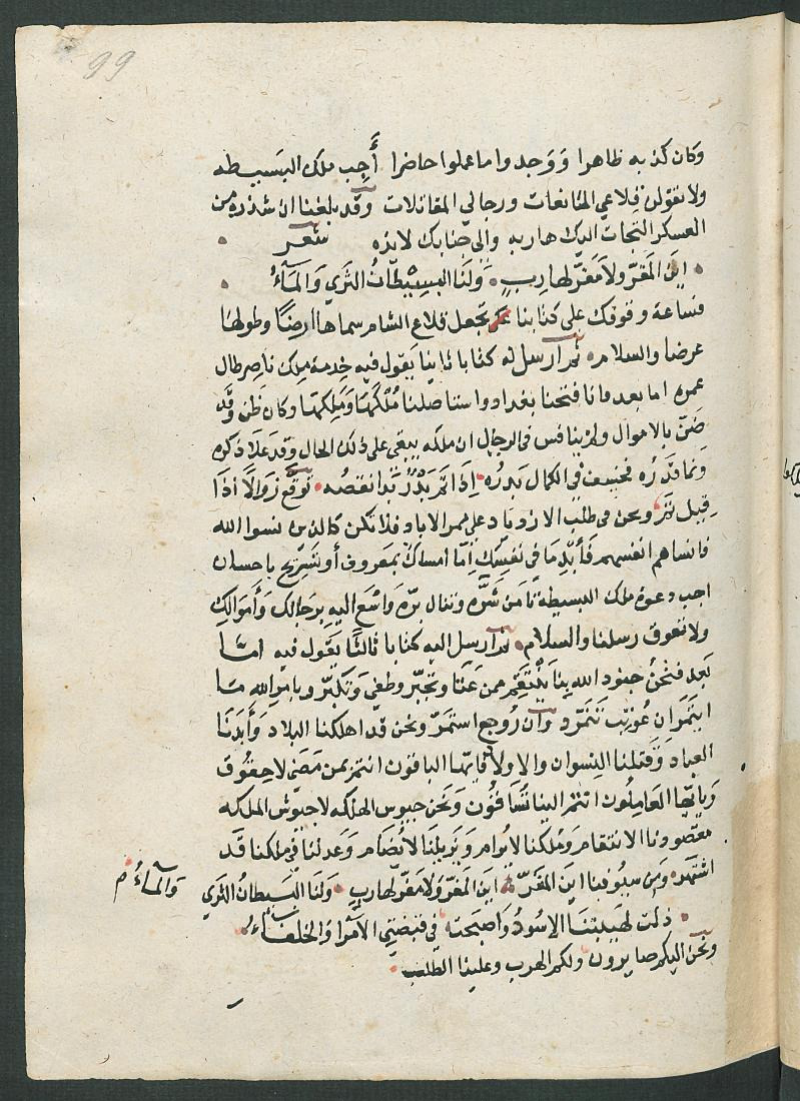 99
وكان كذبه ظاهرا ووجدوا ما عملوا حاضرا أجب ملك البسيطه
ولا تقولن قلاعي المانعات ورجالي المقاتلات وقد بلغنا ان شذره من
العسكر التجات اليك هاربه والى جنابك لائذه شعر
اين المفرّ ولا مفرّ لهارب ولنا البسيطان الثري والماءُ
فساعة وقوفك على كتابنا تجعل قلاع الشام سماها أرضًا وطولها
عرضا والسلام ثم ارسل له كتابا ثانيا يقول فيه خدمة ملك ناصر طال
عمره اما بعد فانا فتحنا بغداد واستاصلنا مُلكها ومَلِكها وكان ظن وقد
ضنّ بالاموال ولم ينافس في الرجال ان ملكه يبقى على ذلك الحال وقد علا ذكره
ونما قدره فخسف في الكمال بدره اذا تم بدر بدا نقصه توقع زوالا اذا
قيل تم ونحن في طلب الازدياد على ممر الاباد فلا تكن كالذين نسوا الله
فانساهم انفسهم فأبدِ ما في نفسك إمّا امساك بمعروف أو تسريح باحسان
اجب دعوة ملك البسيطة تامن شرّه وتنال برّه واسْعَ اليهِ برجالك وأموالك
ولا تعوق رسلنا والسلام ثم ارسل اليه كتابا ثالثا يقول فيه امّا
بعد فنحنُ جنود الله بِنا ينتقم ممن عتا وتجبّر وطغى وتكبّر وبامر الله مّا
ايتمر ان عُوتِب تنمّرد وان رُوجع استمرّ ونحن قد اهلكنا البلاد وأبدنا
العباد وقتلنا النسوان والاولاد فايّها الباقون انتم بمن مضى لاحقون
ويا أيّها الغافلون انتم الينا تُساقُون ونحن جيوش الهلكه لا جيوش الملكه
مقصودنا الانتقام ومُلكنا لا يُرام ونزيلنا لا يُضام وعدلنا في ملكنا قد
اشتهر ومن سيوفنا اين المفرّ اين المفرّ ولا مفرّ لهارب ولنا البسيطانُ الثري
والماءُ
ذلّت لهيبتنا الاسُودُ واصبحت في قبضتي الامرا والخلفاءُ
ونحن اليكم صايرون ولكم الهرب وعلينا الطلب